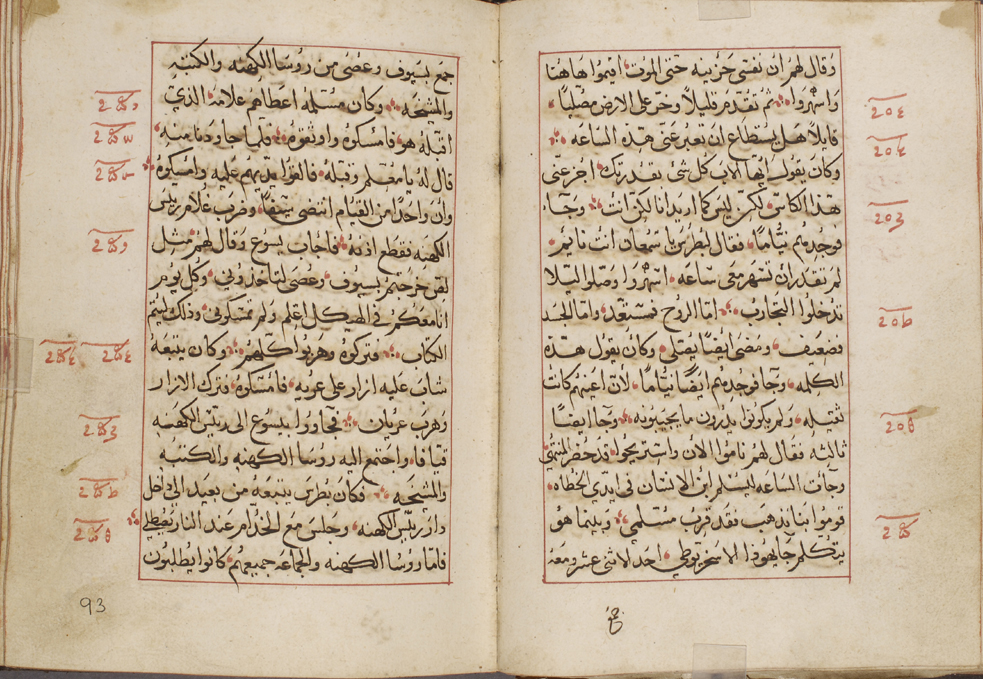 وقال لهم ان نفسي حزينه حتي الموت اقيموا هاهنا
واسهروا ثم تقدم قليلاً وخر على الارض مصلياً
قايلاً هل يستطاع ان تعبر عني هذه الساعه
وكان يقول ايها الاب كل شي بقدرتك اجز عني
هذا الكاس لكن ليس كما اريد انا لكن انت وجاء
فوجدهم نياماً فقال لبطرس يا سمعان انت نايم
لم تقدر ان تسهر معي ساعه اسهروا وصلوا ليلا
تدخلوا التجارب اما الروح فمستعد واما الجسد
فضعيف ومضى ايضاً يصلي وكان يقول هذه
الكلمه وجا فوجدهم ايضاً نياماً لان اعينهم كانت
ثقيله ولم يكونوا يدرون ما يجيبونه وجا ايضاً
ثالثه فقال لهم ناموا الان واستريحوا قد حضر المنتهى
وجآت الساعه ليسلم ابن الانسان في ايدي الخطاه
قوموا بنا نذهب فقد قرب مسلمي وبينما هو
يتكلم جا يهوذا الاسخريوطي احد الاثني عشر ومعه
جمع بسيوف وعصي من روسا الكهنه والكتبه
والمشيخه وكان مسلمه اعطاهم علامه الذي
اقبله هو فامسكوه واوثقوه فلما جا ودنا منه
قال له يا معلم وقبله فالقوا ايديهم عليه وامسكوه
وان واحداً من القيام انتضى سيفاً وضرب غلام ريس
الكهنه فقطع اذنه فاجاب يسوع وقال لهم مثل
لص خرجتم بسيوف وعصي لتاخذوني وكل يوم
انا معكم في الهيكل اعلم ولم تمسكوني وذلك ليتم
الكتاب فتركوه وهربوا كلهم وكان يتبعه
شاب عليه ازار على عريه فامسكوه فترك الازار
وهرب عريان فجاووا بيسوع الى ريس الكهنه
قيافا واجتمع اليه روسا الكهنه والكتبه
والمشيخه فكان بطرس يتبعه من بعيد الى داخل
دار ريس الكهنه وجلس مع الخدام عند النار يصطلي
فاما روسا الكهنه والجماعه جميعهم كانوا يطلبون
93